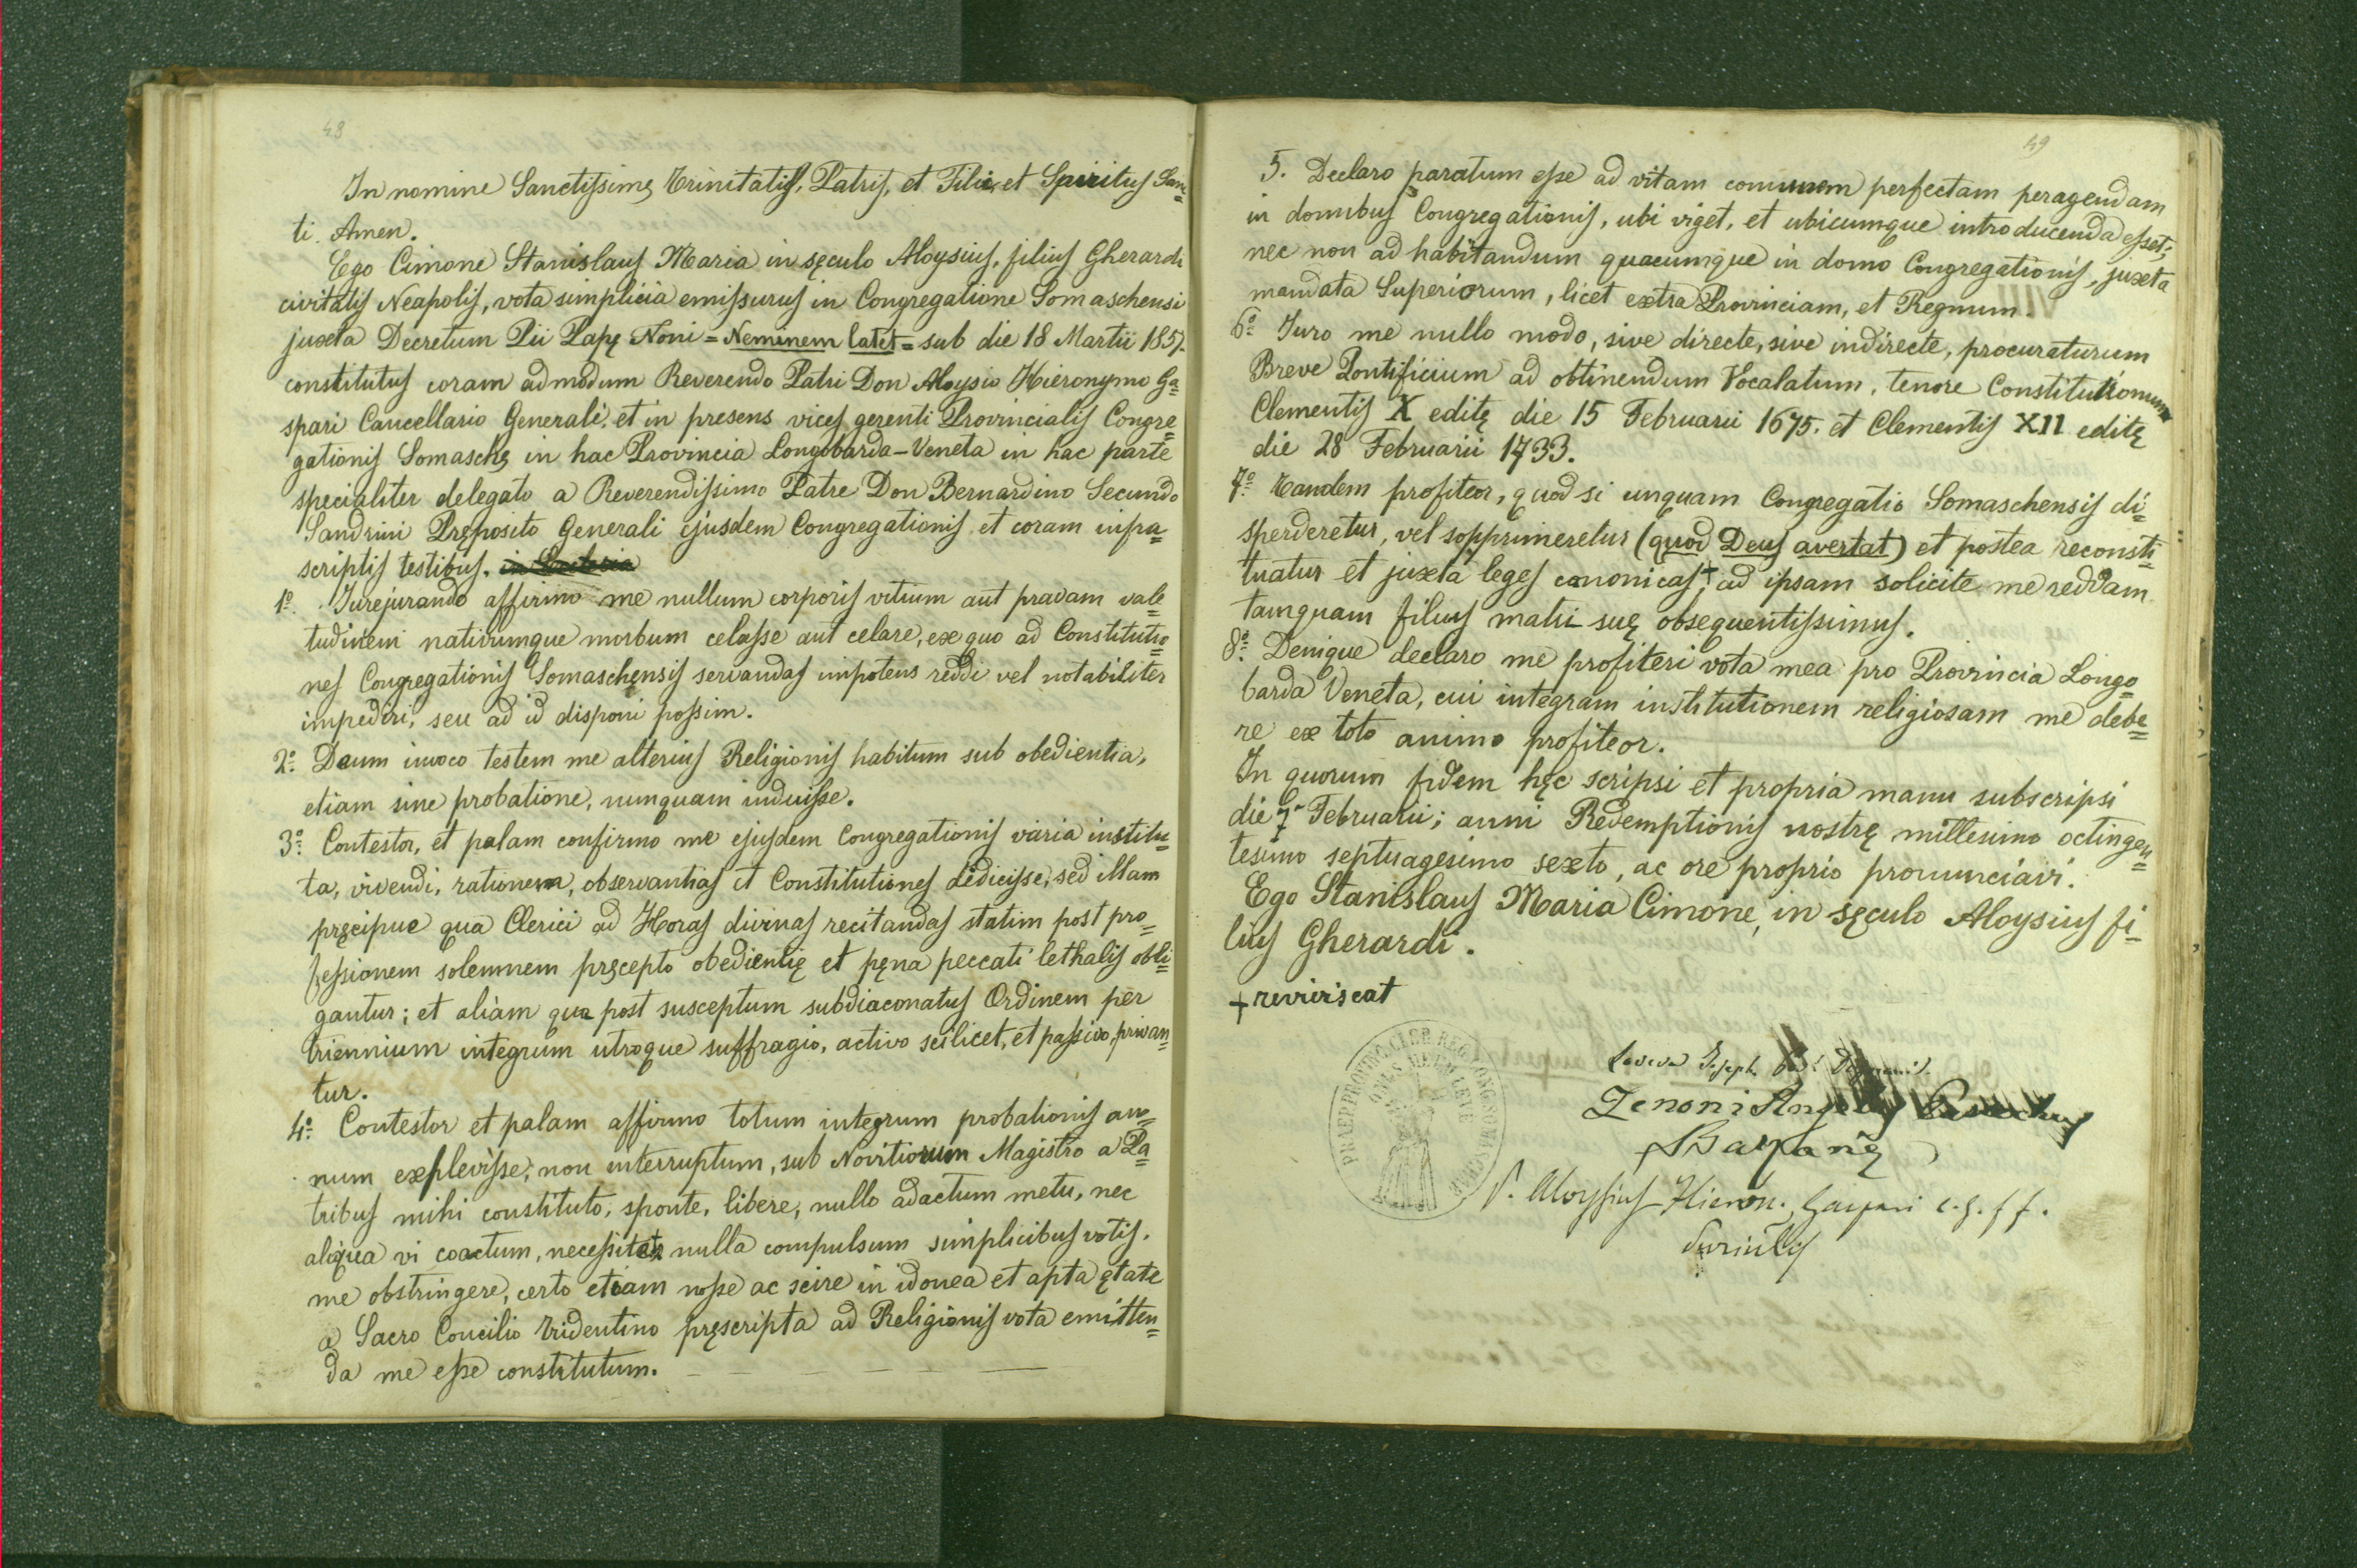 48
In nomine Sanctissimę Trinitatis, Patris, et Filii, et Spiritus San=
ti. Amen.
Ego Cimone Stanislaus Maria in sęculo Aloysius, filius Gherardi
civitatis Neapolis, vota simplicia emissurus in Congregatione Somaschensi
juxta Decretum Pii Papę Noni = Neminem latet = sub die 18 Martii 1857.
constitutus coram admodum Reverendo Patri Don Aloysio Hieronymo Ga=
spari Cancellario Generali, et in presens vices gerenti Provincialis Congre=
gationis Somaschę in hac Provincia Longobarda-Veneta in hac parte
specialiter delegato a Reverendissimo Patre Don Bernardino Secundo
Sandrini Pręposito Generali ejusdem Congregationis et coram infra=
scriptis testibus. in Ecclesia
1º. Jurejurando affirmo me nullum corporis vitium aut pravam vale=
tudinem nativumque morbum celasse aut celare, ex quo ad Constitutio=
nes Congregationis Somaschęnsis servandas impotens reddi vel notabiliter
impediri, seu ad id disponi possim.
2º. Deum invoco testem me alterius Religionis habitum sub obedientia,
etiam sine probatione, nunquam induisse.
3º. Contestor, et palam confirmo me ejusdem Congregationis varia institu=
ta, vivendi, rationem, observantias et Constitutiones didicisse, sed illam
pręcipue qua Clerici ad Horas divinas recitandas statim post pro=
fessionem solemnem pręcepto obedientię et pęna peccati lethalis obli=
gantur; et aliam qua post susceptum subdiaconatus Ordinem per
triennium integrum utroque suffragio, activo scilicet, et passivo, privan=
tur.
4º. Contestor et palam affirmo totum integrum probationis an=
num explevisse, non interruptum, sub Novitiorum Magistro a Pa=
tribus mihi constituto, sponte, libere, nullo adactum metu, nec
aliqua vi coactum, necessitate nulla compulsum simplicibus votis,
me obstringere, certo etiam nosse ac scire in idonea et apta ętate
a Sacro Concilio Tridentino pręscripta ad Religionis vota emitten=
da me esse constitutum.
49
5. Declaro paratum esse ad vitam comunem perfectam peragendam
in domibus Congregationis, ubi viget, et ubicumque introducenda esset;
nec non ad habitandum quacumque in domo Congregationis, juxta
mandata Superiorum, licet extra Provinciam, et Regnum.
6º. Juro me nullo modo, sive directe, sive indirecte, procuraturum
Breve Pontificium ad obtinendum Vocalatum, tenore Constitutionum
Clementis X editę die 15 Februarii 1675. et Clementis XII editę
die 28 Februarii 1733.
7º. Tandem profiteor, quod si unquam Congregatio Somaschensis di=
sperderetur, vel sopprimeretur (quod Deus avertat) et postea reconsti=
tuatur et juxta leges canonicas,+ ad ipsam solicite me reddam
tamquam filius matri suę obsequentissimus.
8º. Denique declaro me profiteri vota mea pro Provincia Longo=
barda Veneta, cui integram institutionem religiosam me debe=
re ex toto animo profiteor.
In quorum fidem hęc scripsi et propria manu subscripsi
die 7ª Februarii; anni Redemptionis nostrę millesimo octingen=
tesimo septuagesimo sexto, ac ore proprio pronunciavi.
Ego Stanislaus Maria Cimone, in sęculo Aloysius fi=
lius Gherardi.
+ reviviscat
Joseph
Zenoni
P. Aloysius Hieron. Gaspari c. g. ff.
ONUS MEUM LEVE